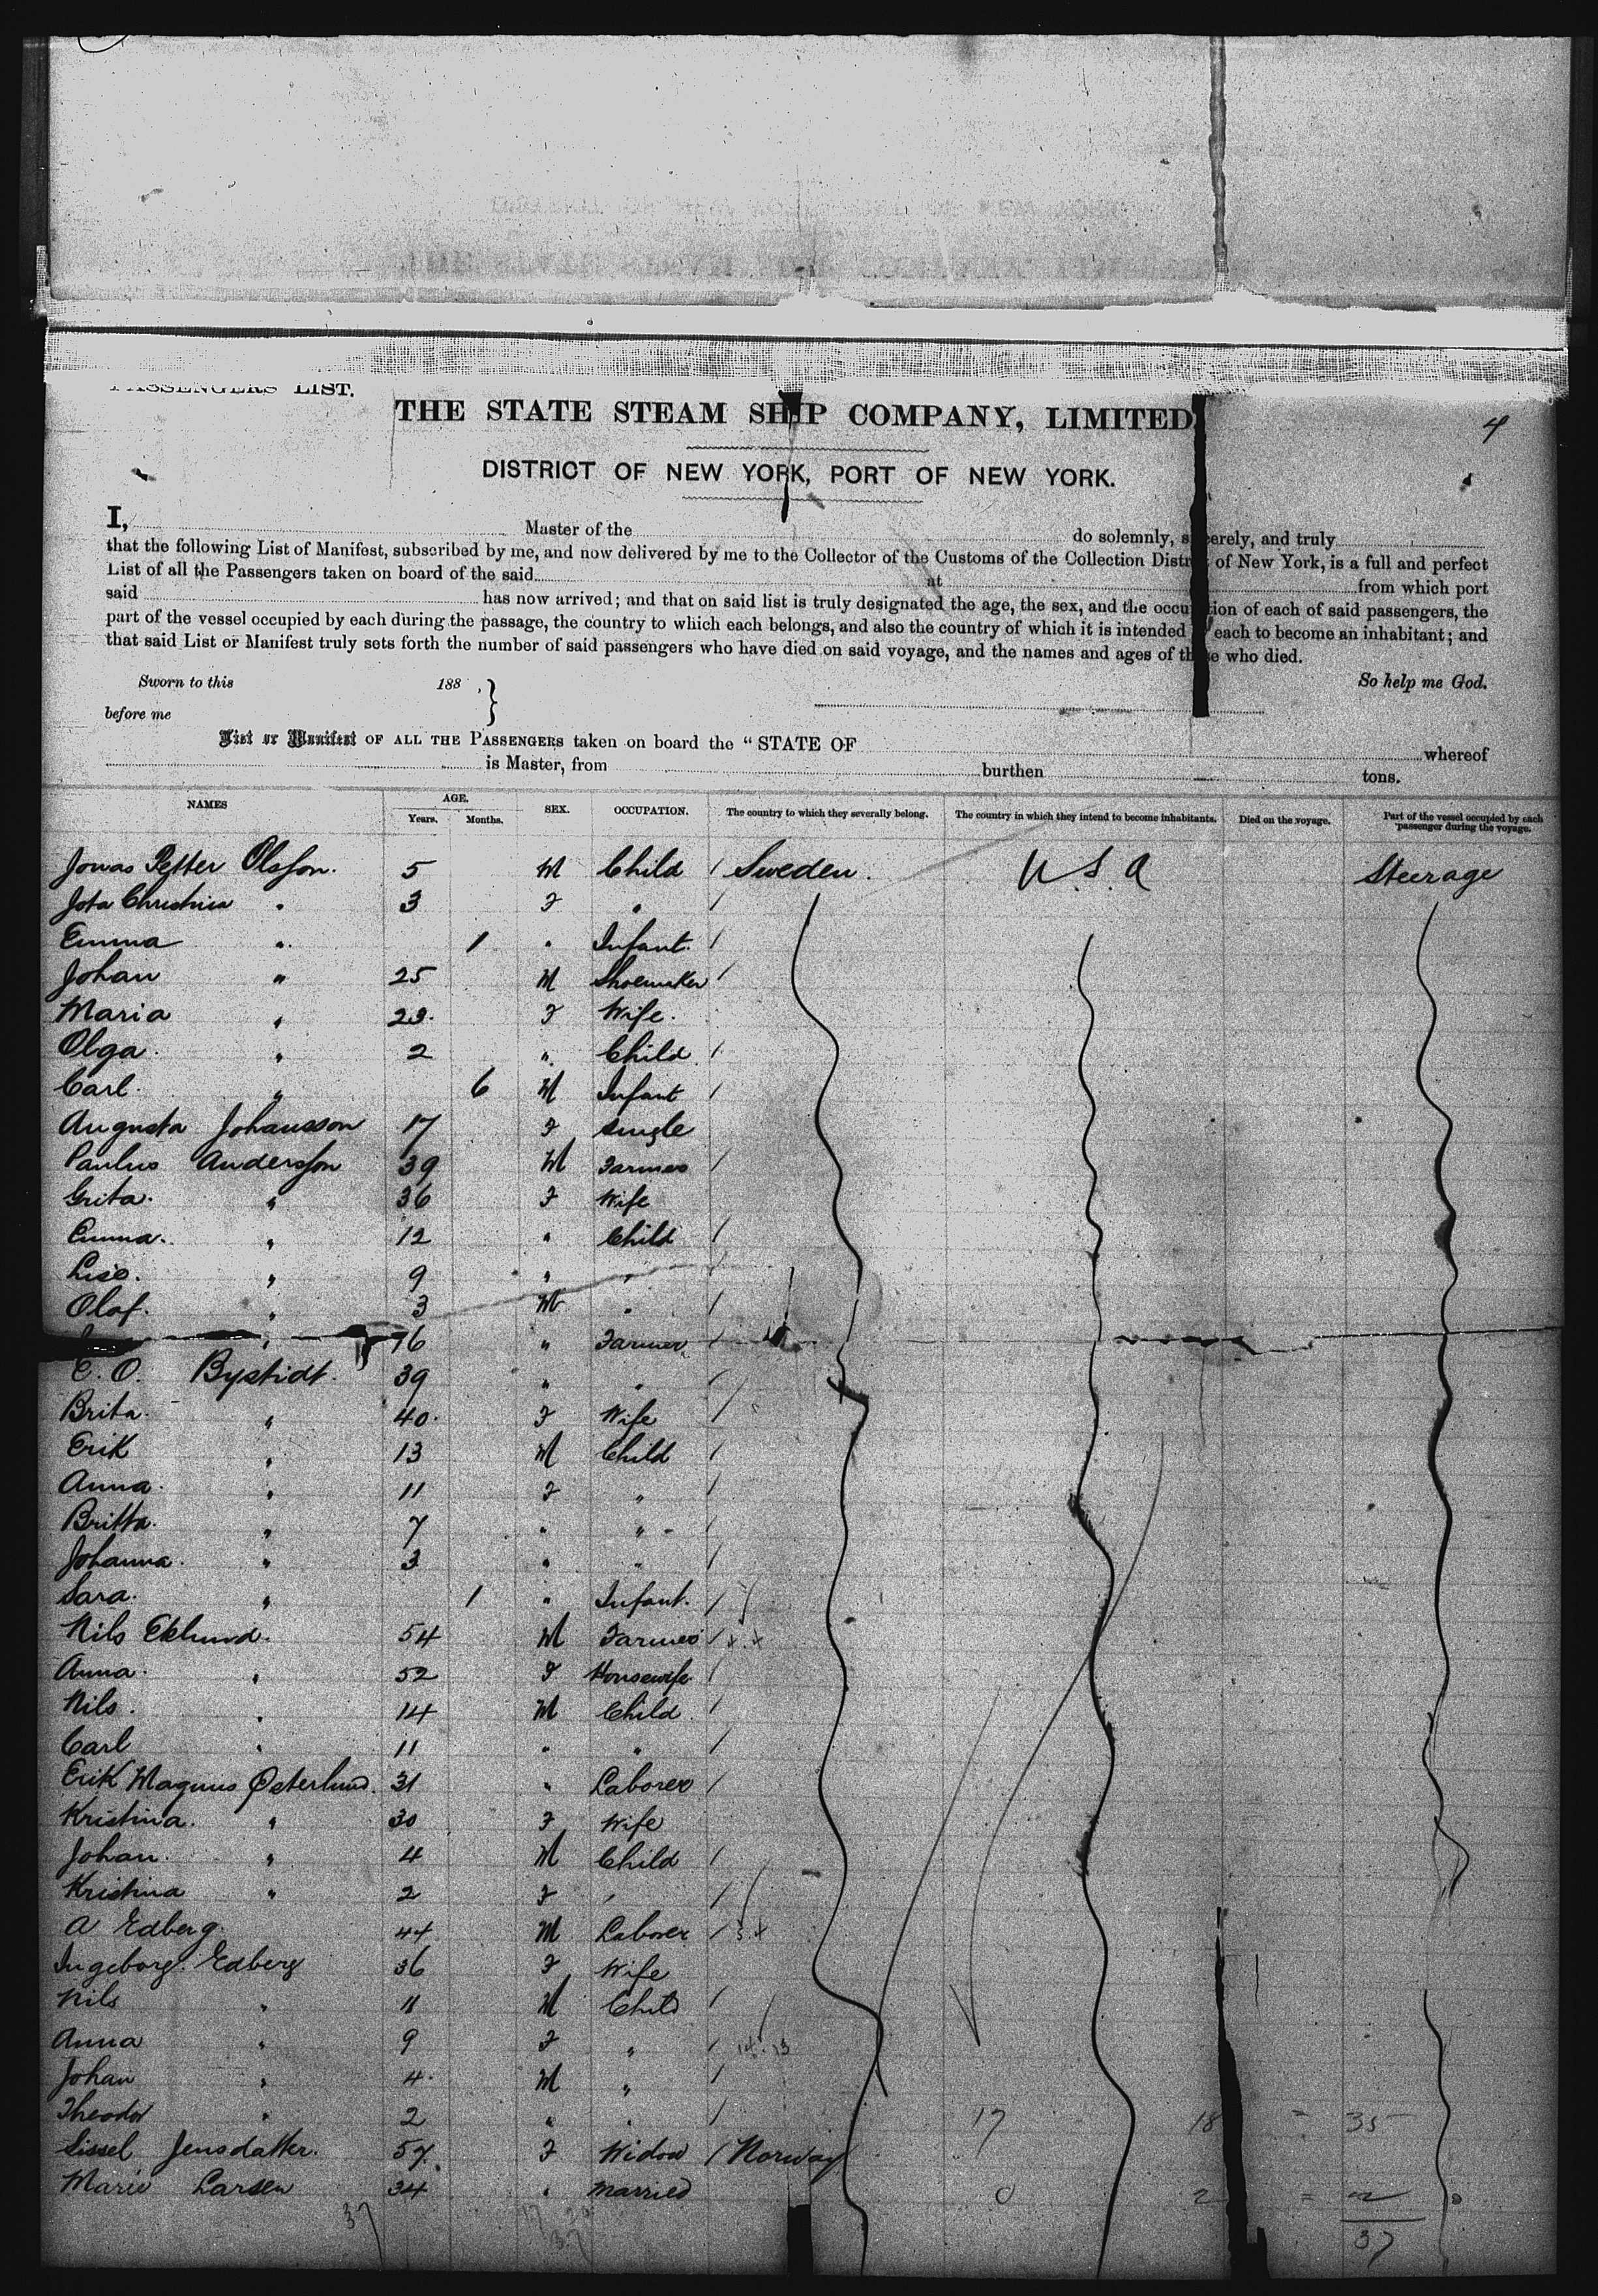 PASSENGERS LIST.
THE STATE STEAM SHIP COMPANY, LIMITED
4
DISTRICT OF NEW YORK, PORT OF NEW YORK.
I, Master of the do solemnly, sincerely, and truly
that the following List of Manifest, subscribed by me, and now delivered by me to the Collector of the Customs of the Collection District of New York, is a full and perfect
List of all the Passengers taken on board of the said at from which port
said has now arrived; and that on said list is truly designated the age, the sex, and the occupation of each of said passengers, the
part of the vessel occupied by each during the passage, the country to which each belongs, and also the country of which it is intended each to become an inhabitant; and
that said List or Manifest truly sets forth the number of said passengers who have died on said voyage, and the names and ages of those who died.
Sworn to this 188 , } So help me God.
before me
List or Manifest OF ALL THE PASSENGERS taken on board the "STATE OF whereof
is Master, from burthen tons.
NAMES AGE. Years. Months. SEX. OCCUPATION. The country to which they severally belong. The country in which they intend to become inhabitants. Died on the voyage. Part of the vessel occupied by each passenger during the voyage.
Jonas Petter Olsson. 5 M Child / Sweden. U.S.A Steerage
Jota Christina " 3 F " /
Emma " 1 " Infant. /
Johan " 25 M Shoemaker /
Maria " 23. F Wife.
Olga. " 2 " Child /
Carl. " 6 M Infant /
Augusta Johansson 17 F Single
Paulus Andersson 39 M Farmer /
Grita. " 36 F Wife
Emma. " 12 " Child /
Lisa. " 9 " " /
Olaf. " 3 M " /
" 76 " Farmer /
E. O. Bystidt. 39 " " /
Brita. " 40. F Wife /
Erik " 13 M Child /
Anna. " 11 F " /
Britta. " 7 " " /
Johanna. " 3 " " /
Sara. " 1 " Infant. /
Nils Eklund. 54 M Farmer /
Anna. " 52 F Housewife /
Nils. " 14 M Child /
Carl " 11 " " /
Erik Magnus Østerlund. 31 " Laborer /
Kristina. " 30 F Wife
Johan. " 4 M Child /
Kristina " 2 F " /
A Edberg. 44 M Laborer /
Ingeborg Edberg 36 F Wife
Nils " 11 M Child /
Anna " 9 F " / 14.13
Johan " 4. M " /
Theodor " 2 " " / 17 18 = 35
Sissel Jensdatter. 57. F Widow / Norway
Marie Larsen 34 " Married 0 2 = 2
37 17 20 37 37